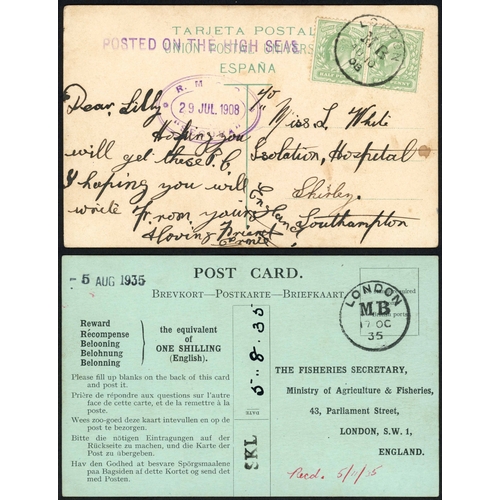 TARJETA POSTAL
POSTED ON THE HIGH SEAS
UNION POSTAL UNIVERSAL
ESPAÑA
LONDON
08
R. M
29 JUL 1908
HALF PENNY
Dear Lilly
Hoping you
will get these P.C
I hoping you will
write From yours
loving Friend
c/o
Miss L. White
Isolation, Hospetal
Shirley.
Southampton
England
- 5 AUG 1935
POST CARD.
BREVKORT—POSTKARTE—BRIEFKAART
LONDON
MB
17 OC
35
Reward
Récompense
Belooning
Belohnung
Belonning
the equivalent
of
ONE SHILLING
(English).
Please fill up blanks on the back of this card
and post it.
Prière de répondre aux questions sur l'autre
face de cette carte, et de la remettre à la
poste.
Wees zoo-goed deze kaart intevullen en op de
post te bezorgen.
Bitte die nötigen Eintragungen auf der
Rückseite zu machen, und die Karte der
Post zu übergeben.
Hav den Godhed at besvare Spörgsmaalene
paa Bagsiden af dette Kortet og sendet det
med Posten.
5.8.35
SKL
THE FISHERIES SECRETARY,
Ministry of Agriculture & Fisheries,
43, Parliament Street,
LONDON, S.W. 1,
ENGLAND.
Recd.